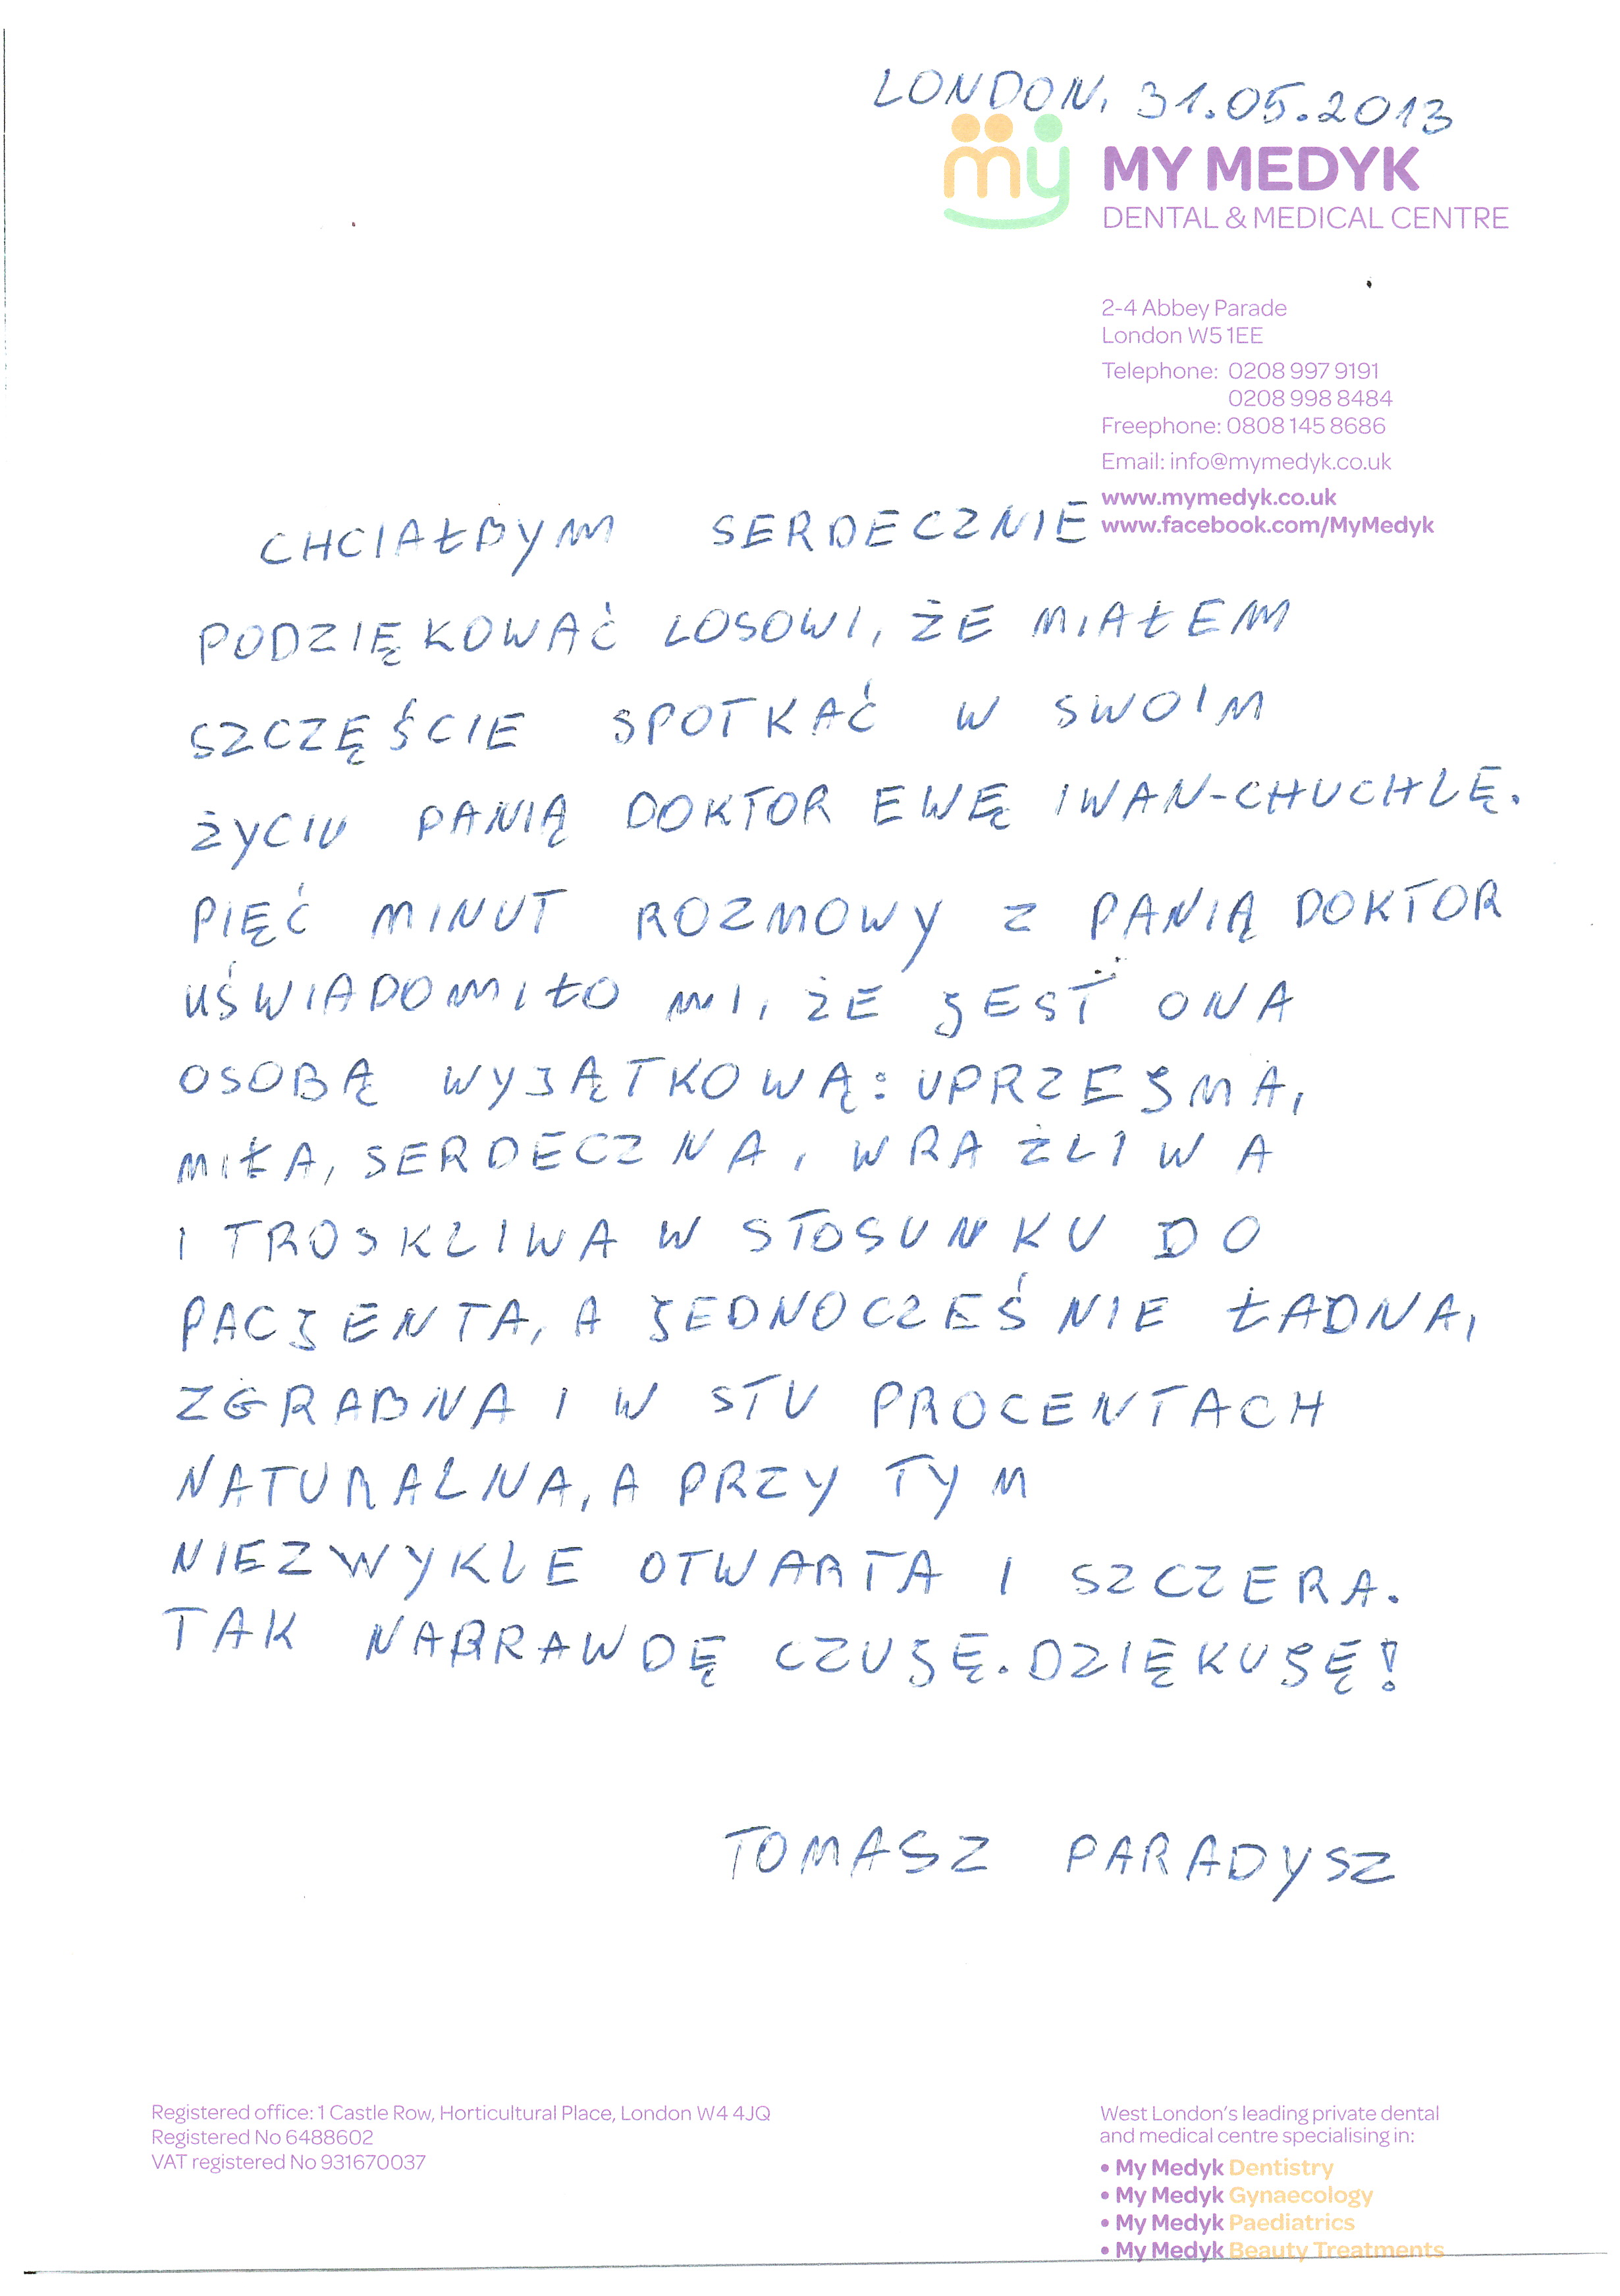 LONDON, 31.05.2013
my MY MEDYK
DENTAL & MEDICAL CENTRE
2-4 Abbey Parade
London W5 1EE
Telephone: 0208 997 9191
0208 998 8484
Freephone: 0808 145 8686
Email: info@mymedyk.co.uk
www.mymedyk.co.uk
www.facebook.com/MyMedyk
CHCIAŁBYM SERDECZNIE
PODZIĘKOWAĆ LOSOWI, ŻE MIAŁEM
SZCZĘŚCIE SPOTKAĆ W SWOIM
ŻYCIU PANIĄ DOKTOR EWĘ IWAN-CHUCHLĘ.
PIĘĆ MINUT ROZMOWY Z PANIĄ DOKTOR
UŚWIADOMIŁO MI, ŻE JEST ONA
OSOBĄ WYJĄTKOWĄ: UPRZEJMA,
MIŁA, SERDECZNA, WRAŻLIWA
I TROSKLIWA W STOSUNKU DO
PACJENTA, A JEDNOCZEŚNIE ŁADNA,
ZGRABNA I W STU PROCENTACH
NATURALNA, A PRZY TYM
NIEZWYKLE OTWARTA I SZCZERA.
TAK NAPRAWDĘ CZUJĘ. DZIĘKUJĘ!
TOMASZ PARADYSZ
Registered office: 1 Castle Row, Horticultural Place, London W4 4JQ
Registered No 6488602
VAT registered No 931670037
West London's leading private dental
and medical centre specialising in:
• My Medyk Dentistry
• My Medyk Gynaecology
• My Medyk Paediatrics
• My Medyk Beauty Treatments